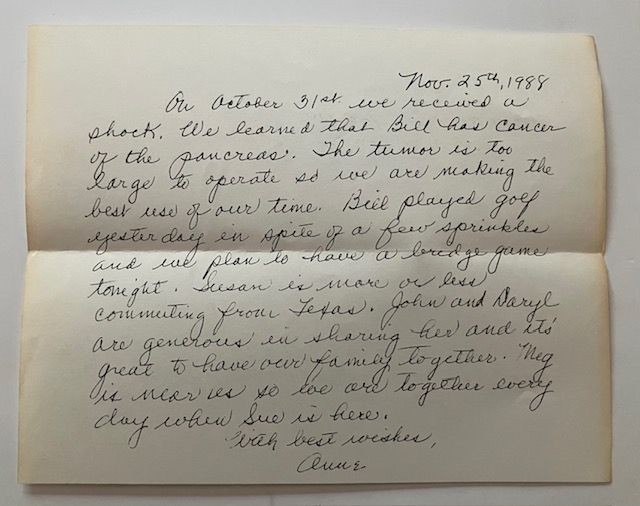 Nov. 25th, 1988
On October 31st we received a
shock. We learned that Bill has cancer
of the pancreas. The tumor is too
large to operate so we are making the
best use of our time. Bill played golf
yesterday in spite of a few sprinkles
and we plan to have a bridge game
tonight. Susan is more or less
commuting from Texas. John and Daryl
are generous in sharing her and it's
great to have our family together. Meg
is near us so we are together every
day when Sue is here.
With best wishes,
Anne